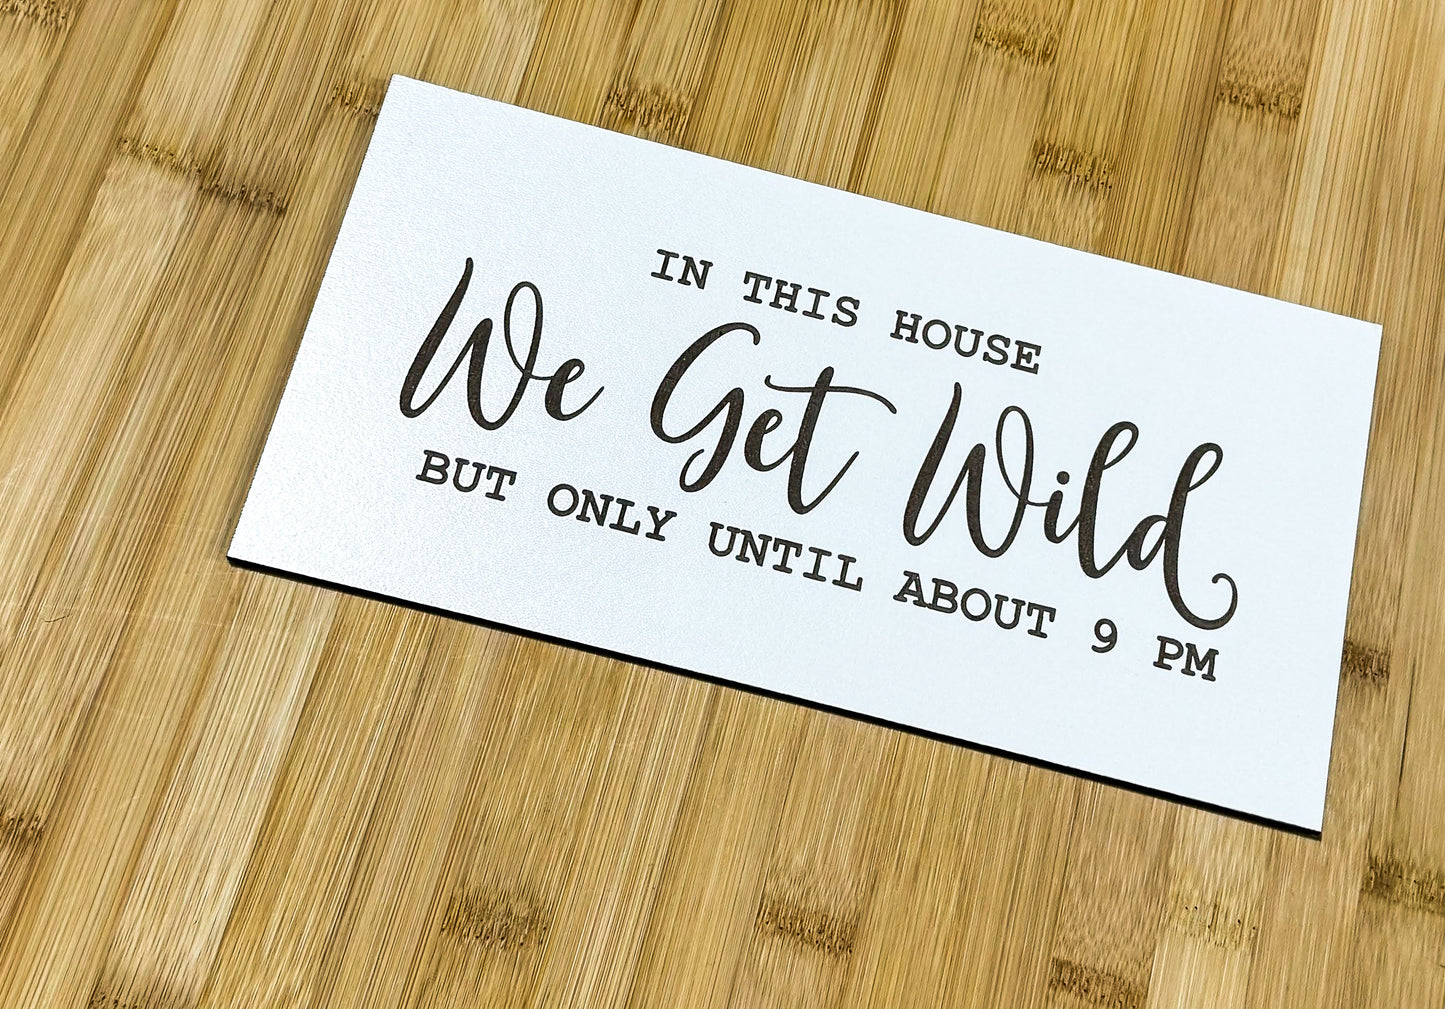 IN THIS HOUSE
We Get Wild
BUT ONLY UNTIL ABOUT 9 PM